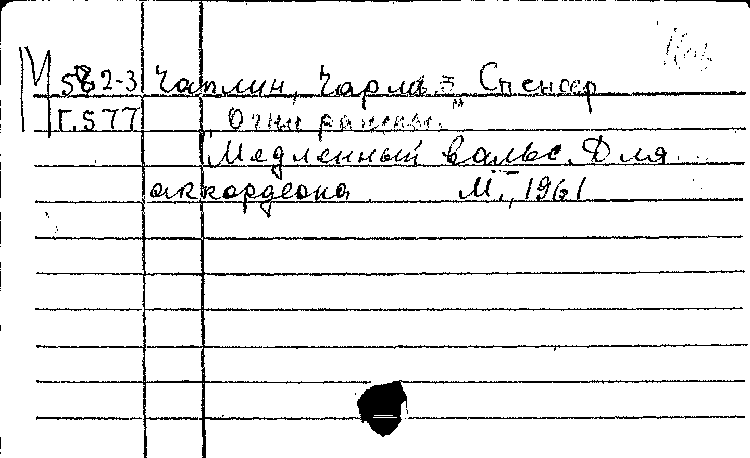 М 582-3 Чаплин, Чарльз Спенсер
Г.577 "Огни рампы."
Медленный вальс. Для
аккордеона М., 1961